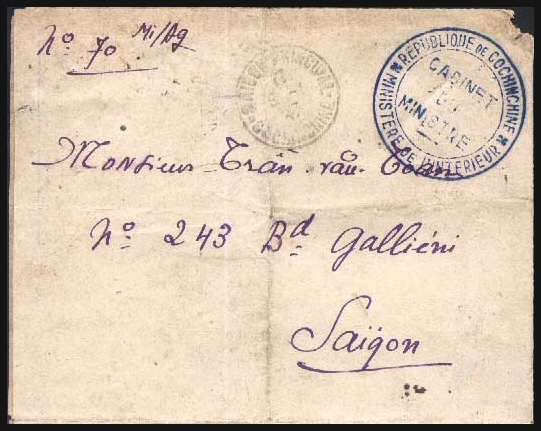 No. 70 Mi/Ag
RÉPUBLIQUE DE COCHINCHINE
MINISTÈRE DE L'INTÉRIEUR
CABINET
DU
MINISTRE
Monsieur Trân
No. 243 Bd Galliéni
Saïgon